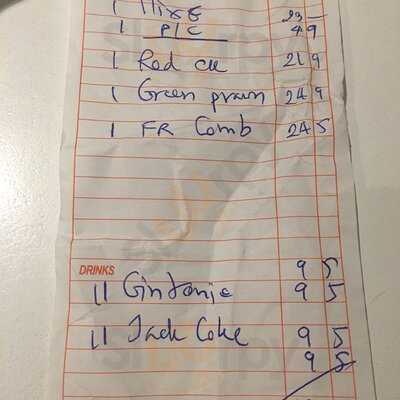 1 Mixe 23 —
1 P/C 4 9
1 Red cu 21 9
1 Green prawn 24 9
1 FR Comb 24 5
DRINKS 9 5
11 Gintonic 9 5
11 Jack Coke 9 5
9 5